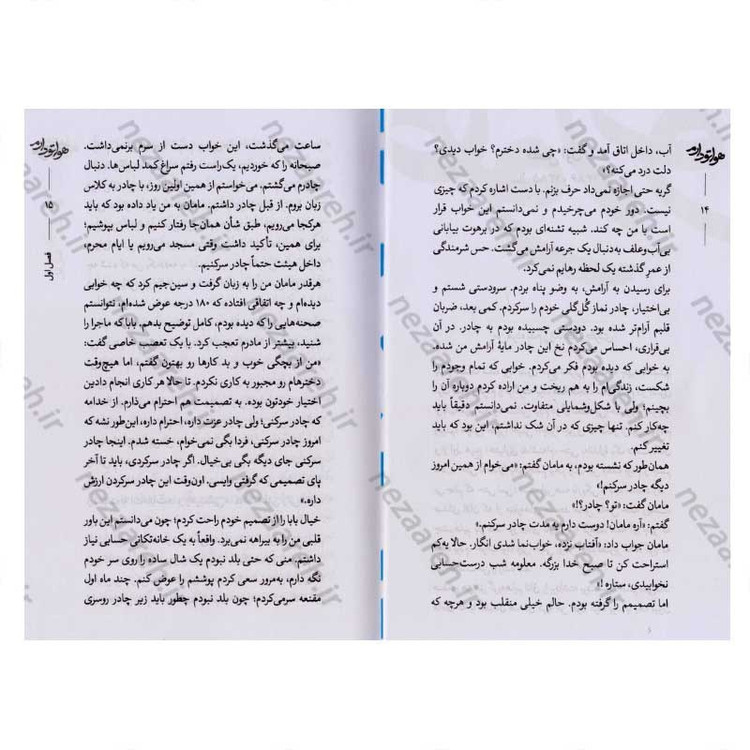 هواتو دارم
۱۴
آب، داخل اتاق آمد و گفت: «چی شده دخترم؟ خواب دیدی؟
دلت درد می‌کنه؟»
گریه حتی اجازه نمی‌داد حرف بزنم. با دست اشاره کردم که چیزی
نیست. دور خودم می‌چرخیدم و نمی‌دانستم این خواب قرار
است با من چه کند. شبیه تشنه‌ای بودم که در برهوت بیابانی
بی‌آب‌وعلف به‌دنبال یک جرعه آرامش می‌گشت. حس شرمندگی
از عمرِ گذشته یک لحظه رهایم نمی‌کرد.
برای رسیدن به آرامش، به وضو پناه بردم. سرودستی شستم و
بی‌اختیار، چادر نماز گُل‌گلی خودم را سرکردم. کمی بعد، ضربان
قلبم آرام‌تر شده بود. دودستی چسبیده بودم به چادر. در آن
بی‌قراری، احساس می‌کردم نخ این چادر مایهٔ آرامش من شده.
به خوابی که دیده بودم فکر می‌کردم. خوابی که تمام وجودم را
شکست، زندگی‌ام را به هم ریخت و من اراده کردم دوباره آن را
بچینم؛ ولی با شکل‌وشمایلی متفاوت. نمی‌دانستم دقیقاً باید
چه‌کار کنم. تنها چیزی که در آن شک نداشتم، این بود که باید
تغییر کنم.
همان‌طور که نشسته بودم، به مامان گفتم: «می‌خوام از همین امروز
دیگه چادر سرکنم!»
مامان گفت: «تو؟ چادر؟!»
گفتم: «آره مامان! دوست دارم یه مدت چادر سرکنم.»
مامان جواب داد: «آفتاب نزده، خواب‌نما شدی انگار. حالا یه‌کم
استراحت کن تا صبح خدا بزرگه. معلومه شب درست‌حسابی
نخوابیدی، ستاره!»
اما تصمیمم را گرفته بودم. حالم خیلی منقلب بود و هرچه که
هواتو دارم
۱۵
فصل اول
ساعت می‌گذشت، این خواب دست از سرم برنمی‌داشت.
صبحانه را که خوردیم، یک‌راست رفتم سراغ کمد لباس‌ها. دنبال
چادرم می‌گشتم. می‌خواستم از همین اولین روز، با چادر به کلاس
زبان بروم. از قبل چادر داشتم. مامان به من یاد داده بود که باید
هرکجا می‌رویم، طبق شأن همان‌جا رفتار کنیم و لباس بپوشیم؛
برای همین، تأکید داشت وقتی مسجد می‌رویم یا ایام محرم،
داخل هیئت حتماً چادر سرکنیم.
هرقدر مامان من را به زبان گرفت و سین‌جیم کرد که چه خوابی
دیده‌ام و چه اتفاقی افتاده که ۱۸۰ درجه عوض شده‌ام، نتوانستم
صحنه‌هایی را که دیده بودم، کامل توضیح بدهم. بابا که ماجرا را
شنید، بیشتر از مادرم تعجب کرد. با یک تعصب خاصی گفت:
«من از بچگی خوب و بد کارها رو بهتون گفتم، اما هیچ‌وقت
دخترهام رو مجبور به کاری نکردم. تا حالا هر کاری انجام دادین
اختیار خودتون بوده. به تصمیمت هم احترام می‌ذارم. از خدامه
که چادر سرکنی؛ ولی چادر عزت داره، احترام داره، این‌طور نشه که
امروز چادر سرکنی، فردا بگی نمی‌خوام، خسته شدم. اینجا چادر
سرکنی جای دیگه بگی بی‌خیال. اگر چادر سرکردی، باید تا آخر
پای تصمیمی که گرفتی وایسی. اون‌وقت این چادر سرکردن ارزش
داره.»
خیال بابا را از تصمیم خودم راحت کردم؛ چون می‌دانستم این باور
قلبی من را به بیراهه نمی‌برد. واقعاً به یک خانه‌تکانی حسابی نیاز
داشتم. منی که حتی بلد نبودم یک شال ساده را روی سر خودم
نگه دارم، به‌مرور سعی کردم پوششم را عوض کنم. چند ماه اول
مقنعه سرمی‌کردم؛ چون بلد نبودم چطور باید زیر چادر روسری
nezaareh.ir